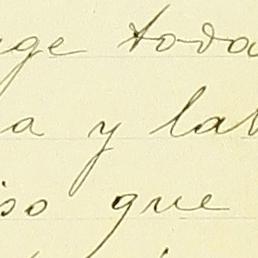 ge toda
a y lab
iso que